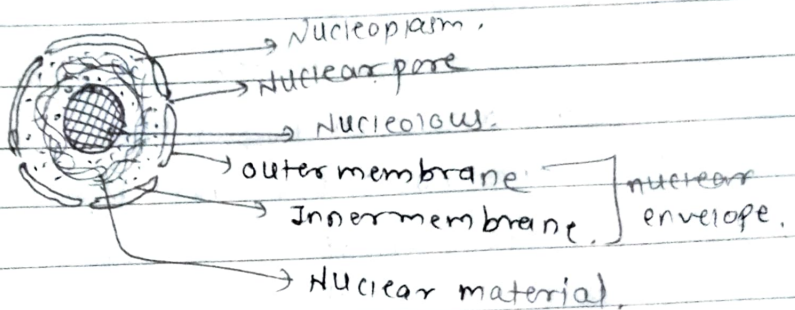 Nucleoplasm.
Nuclear pore
Nucleolous.
outer membrane
Inner membrane.
nuclear
envelope.
Nuclear material.